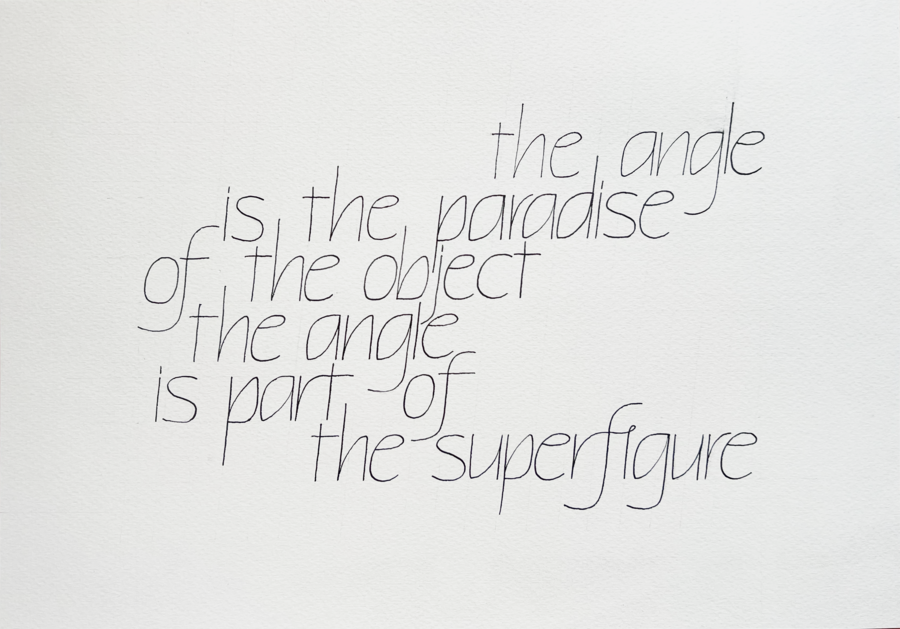 the angle
is the paradise
of the object
the angle
is part of
the superfigure